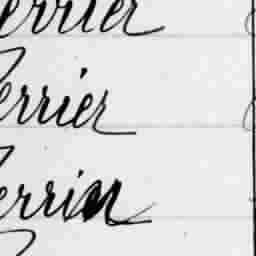 errier
errier
errier